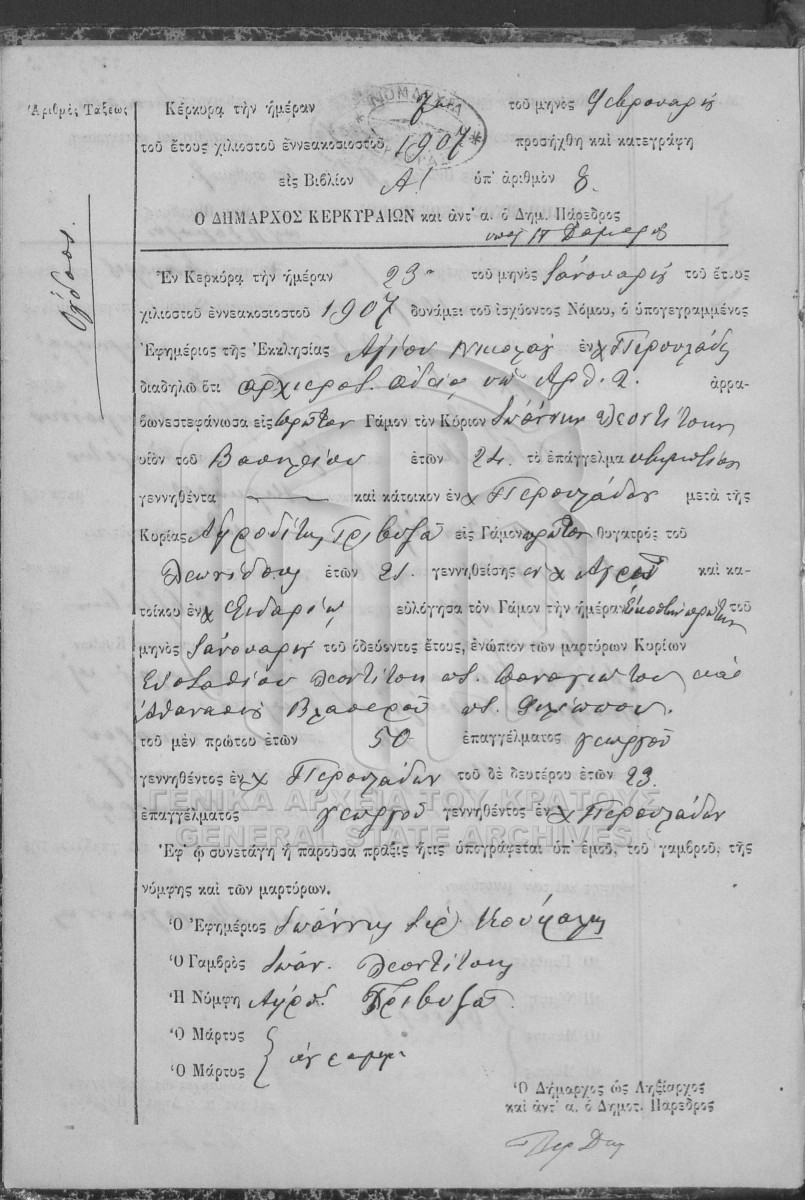 Ἀριθμὸς Τάξεως
Ὄγδοος.
Κέρκυρα τὴν ἡμέραν 7ην τοῦ μηνὸς Φεβρουαρίου
τοῦ ἔτους χιλιοστοῦ ἐννεακοσιοστοῦ 1907 προσήχθη καὶ κατεγράφη
εἰς Βιβλίον Α! ὑπ' ἀριθμὸν 8.
Ὁ ΔΗΜΑΡΧΟΣ ΚΕΡΚΥΡΑΙΩΝ καὶ ἀντ' α. ὁ Δημ. Πάρεδρος
Ἐν Κερκύρᾳ τὴν ἡμέραν 23ην τοῦ μηνὸς Ἰανουαρίου τοῦ ἔτους
χιλιοστοῦ ἐννεακοσιοστοῦ 1907 δυνάμει τοῦ ἰσχύοντος Νόμου, ὁ ὑπογεγραμμένος
Ἐφημέριος τῆς Ἐκκλησίας Ἁγίου Νικολάου ἐν χ Περουλάδες
διαδηλῶ ὅτι ἀρχιερατ. ἀδείᾳ ὑπ' Ἀρθ. 2. ἀρρα-
βωνεστεφάνωσα εἰς πρῶτον Γάμον τὸν Κύριον Ἰωάννην Λεοντίτσην
υἱὸν τοῦ Βασιλείου ἐτῶν 24. τὸ ἐπάγγελμα κτηματίαν
γεννηθέντα — καὶ κάτοικον ἐν χ Περουλάδων μετὰ τῆς
Κυρίας Ἀφροδίτης Γριβυζᾶ εἰς Γάμον πρῶτον θυγατρὸς τοῦ
Λεωνίδου ἐτῶν 21. γεννηθείσης ἐν χ Ἀγροῦ καὶ κα-
τοίκου ἐν χ εὐλόγησα τὸν Γάμον τὴν ἡμέραν Εἰκοστὴν πρώτην τοῦ
μηνὸς Ἰανουαρίου τοῦ ὁδεύοντος ἔτους, ἐνώπιον τῶν μαρτύρων Κυρίων
Εὐσταθίου Λεοντίτση ποτ. Παναγιώτου καὶ
Ἀθανασίου Βλασεροῦ ποτ. Φιλίππου.
τοῦ μὲν πρώτου ἐτῶν 50 ἐπαγγέλματος γεωργοῦ
γεννηθέντος ἐν χ Περουλάδων τοῦ δὲ δευτέρου ἐτῶν 23.
ἐπαγγέλματος γεωργοῦ γεννηθέντος ἐν χ Περουλάδων
ΓΕΝΙΚΑ ΑΡΧΕΙΑ ΤΟΥ ΚΡΑΤΟΥΣ
GENERAL STATE ARCHIVES
Ἐφ' ᾧ συνετάγη ἡ παροῦσα πρᾶξις ἥτις ὑπογράφεται ὑπ' ἐμοῦ, τοῦ γαμβροῦ, τῆς
νύμφης καὶ τῶν μαρτύρων.
Ὁ Ἐφημέριος Ἰωάννης
Ὁ Γαμβρὸς Ἰωάν. Λεοντίτσης
Ἡ Νύμφη Ἀφροδ. Γριβυζᾶ
Ὁ Μάρτυς
Ὁ Μάρτυς
Ὁ Δήμαρχος ὡς Ληξίαρχος
καὶ ἀντ' α. ὁ Δημοτ. Πάρεδρος